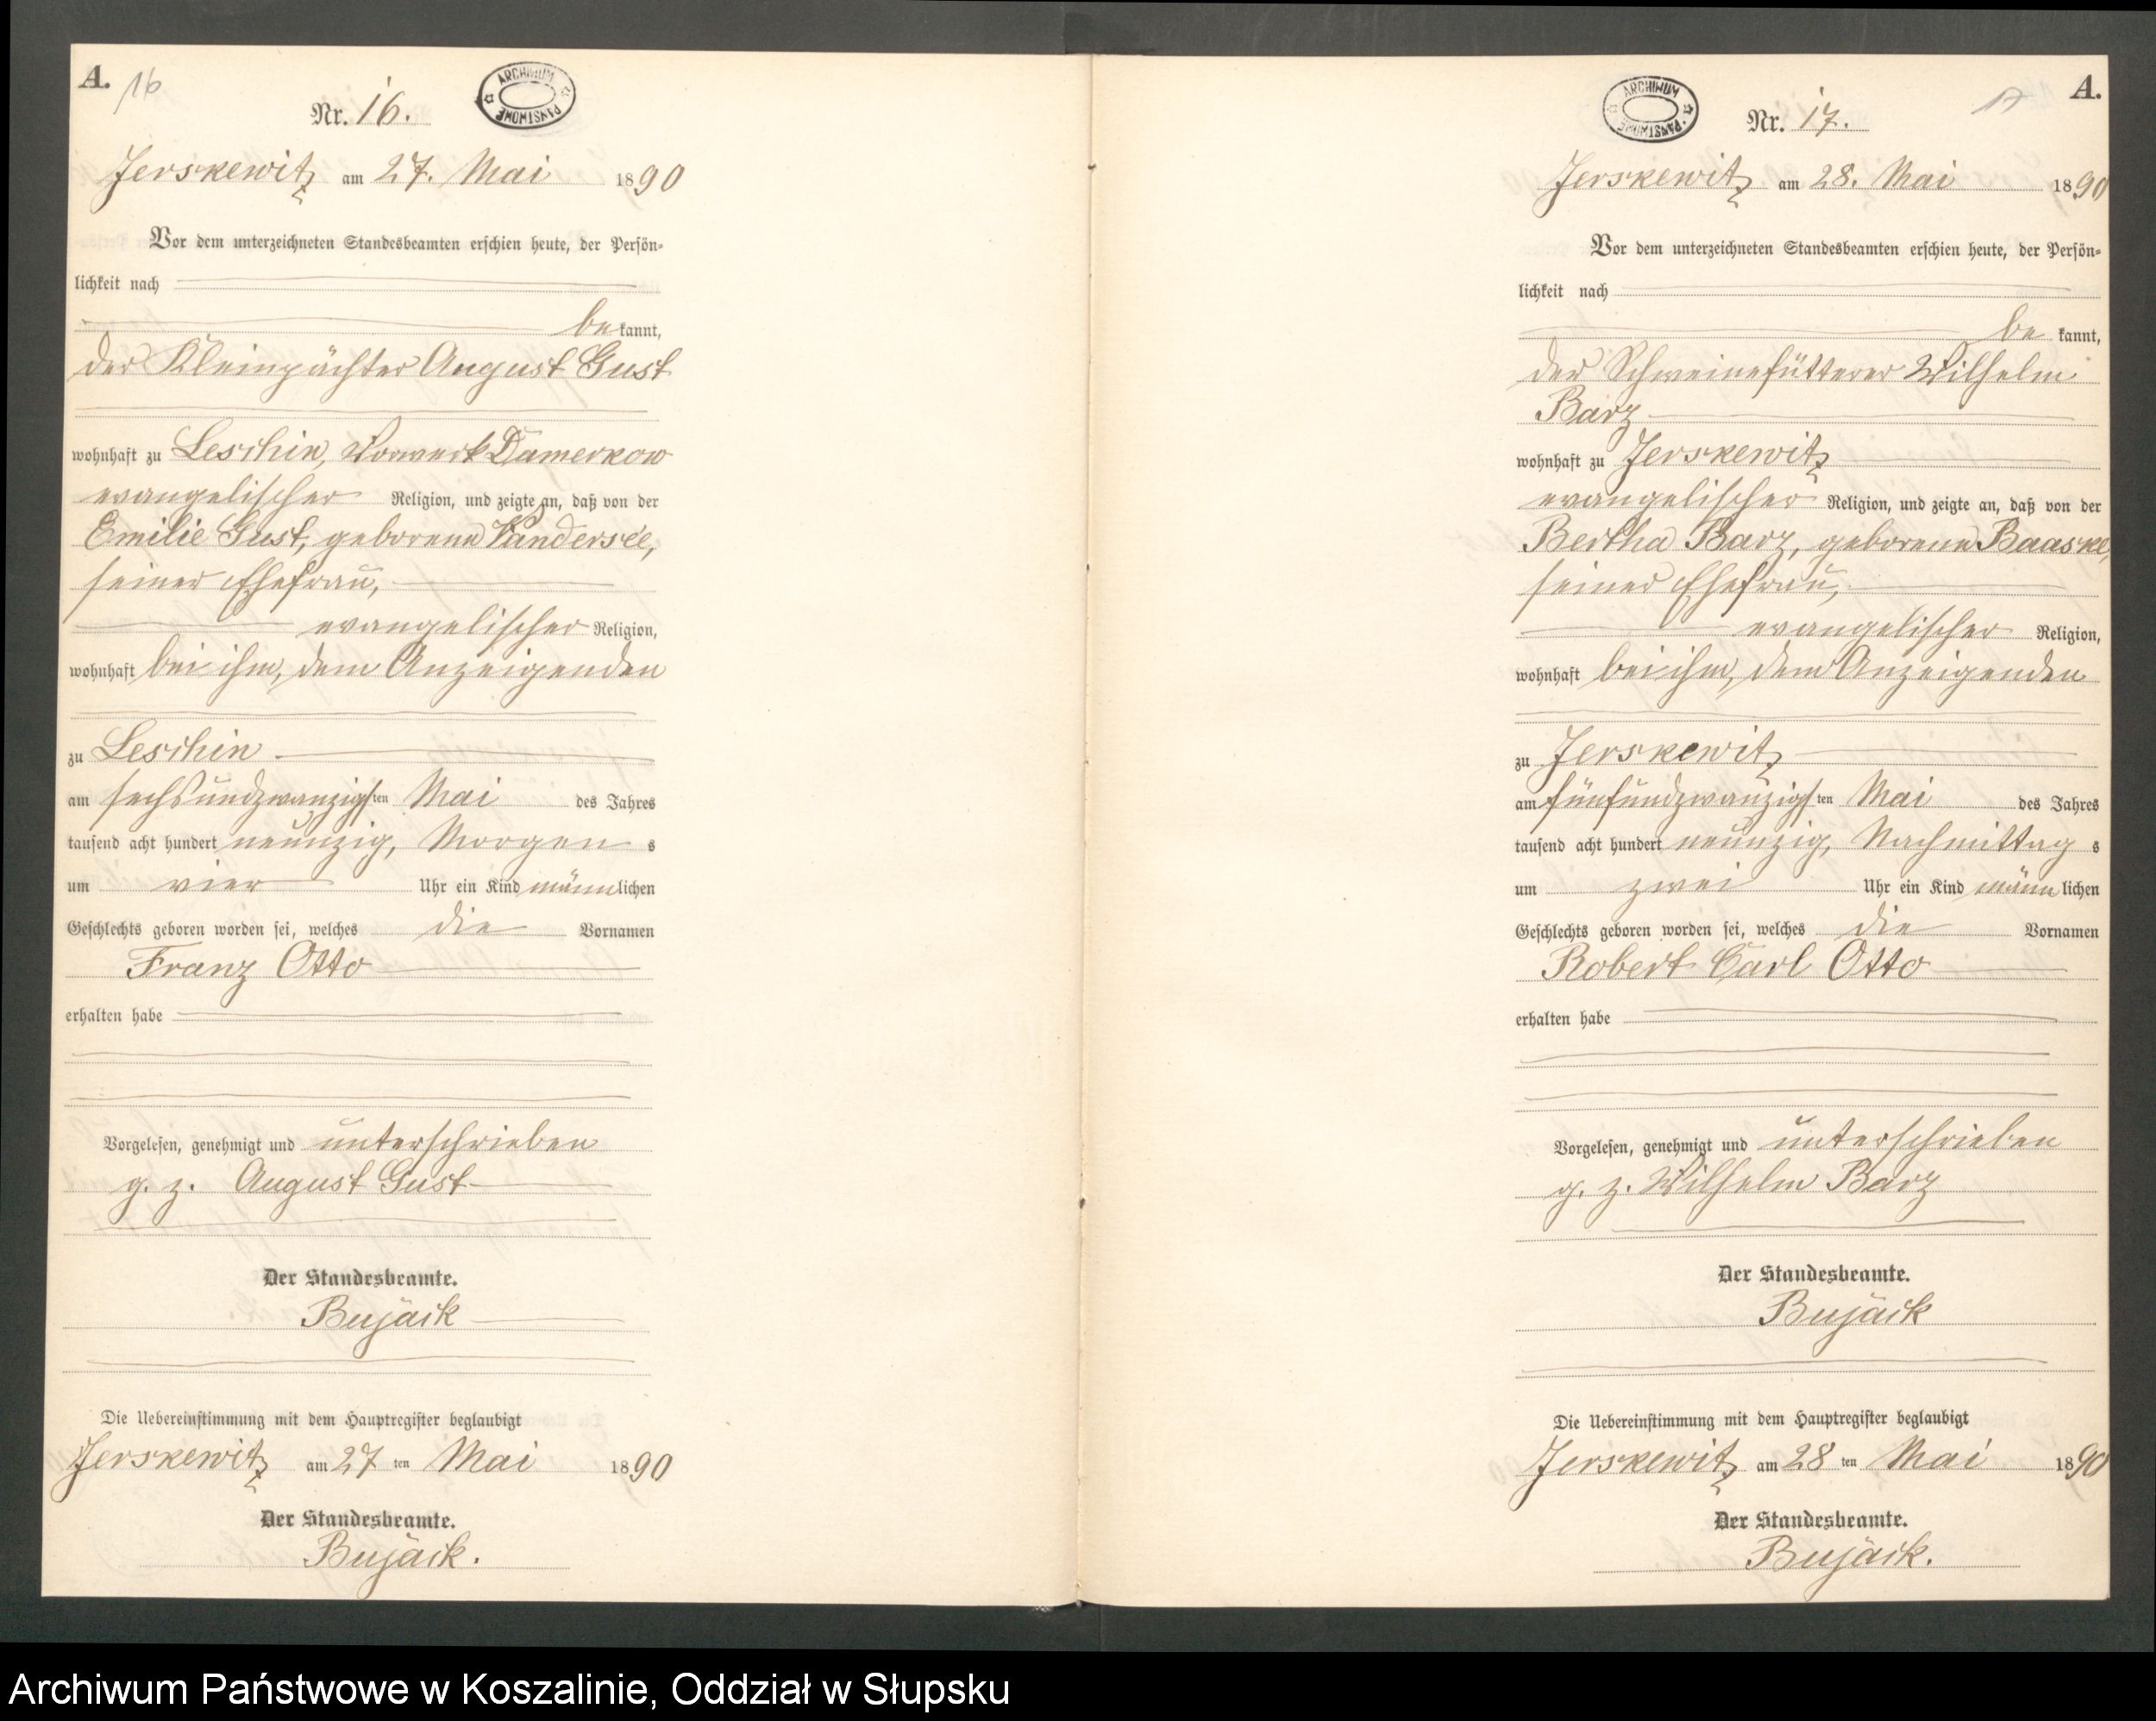 A. 16
ARCHIWUM PAŃSTWOWE
Nr. 16.
Jerskewitz am 27. Mai 1890
Vor dem unterzeichneten Standesbeamten erschien heute, der Persön-
lichkeit nach
bekannt,
der Kleinpächter August Gust
wohnhaft zu Leschin, Vorwerk Damerkow
evangelischer Religion, und zeigte an, daß von der
Emilie Gust, geborenen Vandersee,
seiner Ehefrau,
evangelischer Religion,
wohnhaft bei ihm, dem Anzeigenden
zu Leschin
am sechsundzwanzigsten Mai des Jahres
tausend acht hundert neunzig, Morgens
um vier Uhr ein Kind männlichen
Geschlechts geboren worden sei, welches die Vornamen
Franz Otto
erhalten habe
Vorgelesen, genehmigt und unterschrieben
g. z. August Gust
Der Standesbeamte.
Bujack
Die Uebereinstimmung mit dem Hauptregister beglaubigt
Jerskewitz am 27ten Mai 1890
Der Standesbeamte.
Bujack.
A.
17
ARCHIWUM PAŃSTWOWE
Nr. 17.
Jerskewitz am 28. Mai 1890
Vor dem unterzeichneten Standesbeamten erschien heute, der Persön-
lichkeit nach
bekannt,
der Schweinefütterer Wilhelm
Barz
wohnhaft zu Jerskewitz
evangelischer Religion, und zeigte an, daß von der
Bertha Barz, geborenen Baaske,
seiner Ehefrau,
evangelischer Religion,
wohnhaft bei ihm, dem Anzeigenden
zu Jerskewitz
am fünfundzwanzigsten Mai des Jahres
tausend acht hundert neunzig, Nachmittags
um zwei Uhr ein Kind männlichen
Geschlechts geboren worden sei, welches die Vornamen
Robert Carl Otto
erhalten habe
Vorgelesen, genehmigt und unterschrieben
g. z. Wilhelm Barz
Der Standesbeamte.
Bujack
Die Uebereinstimmung mit dem Hauptregister beglaubigt
Jerskewitz am 28ten Mai 1890
Der Standesbeamte.
Bujack.
Archiwum Państwowe w Koszalinie, Oddział w Słupsku